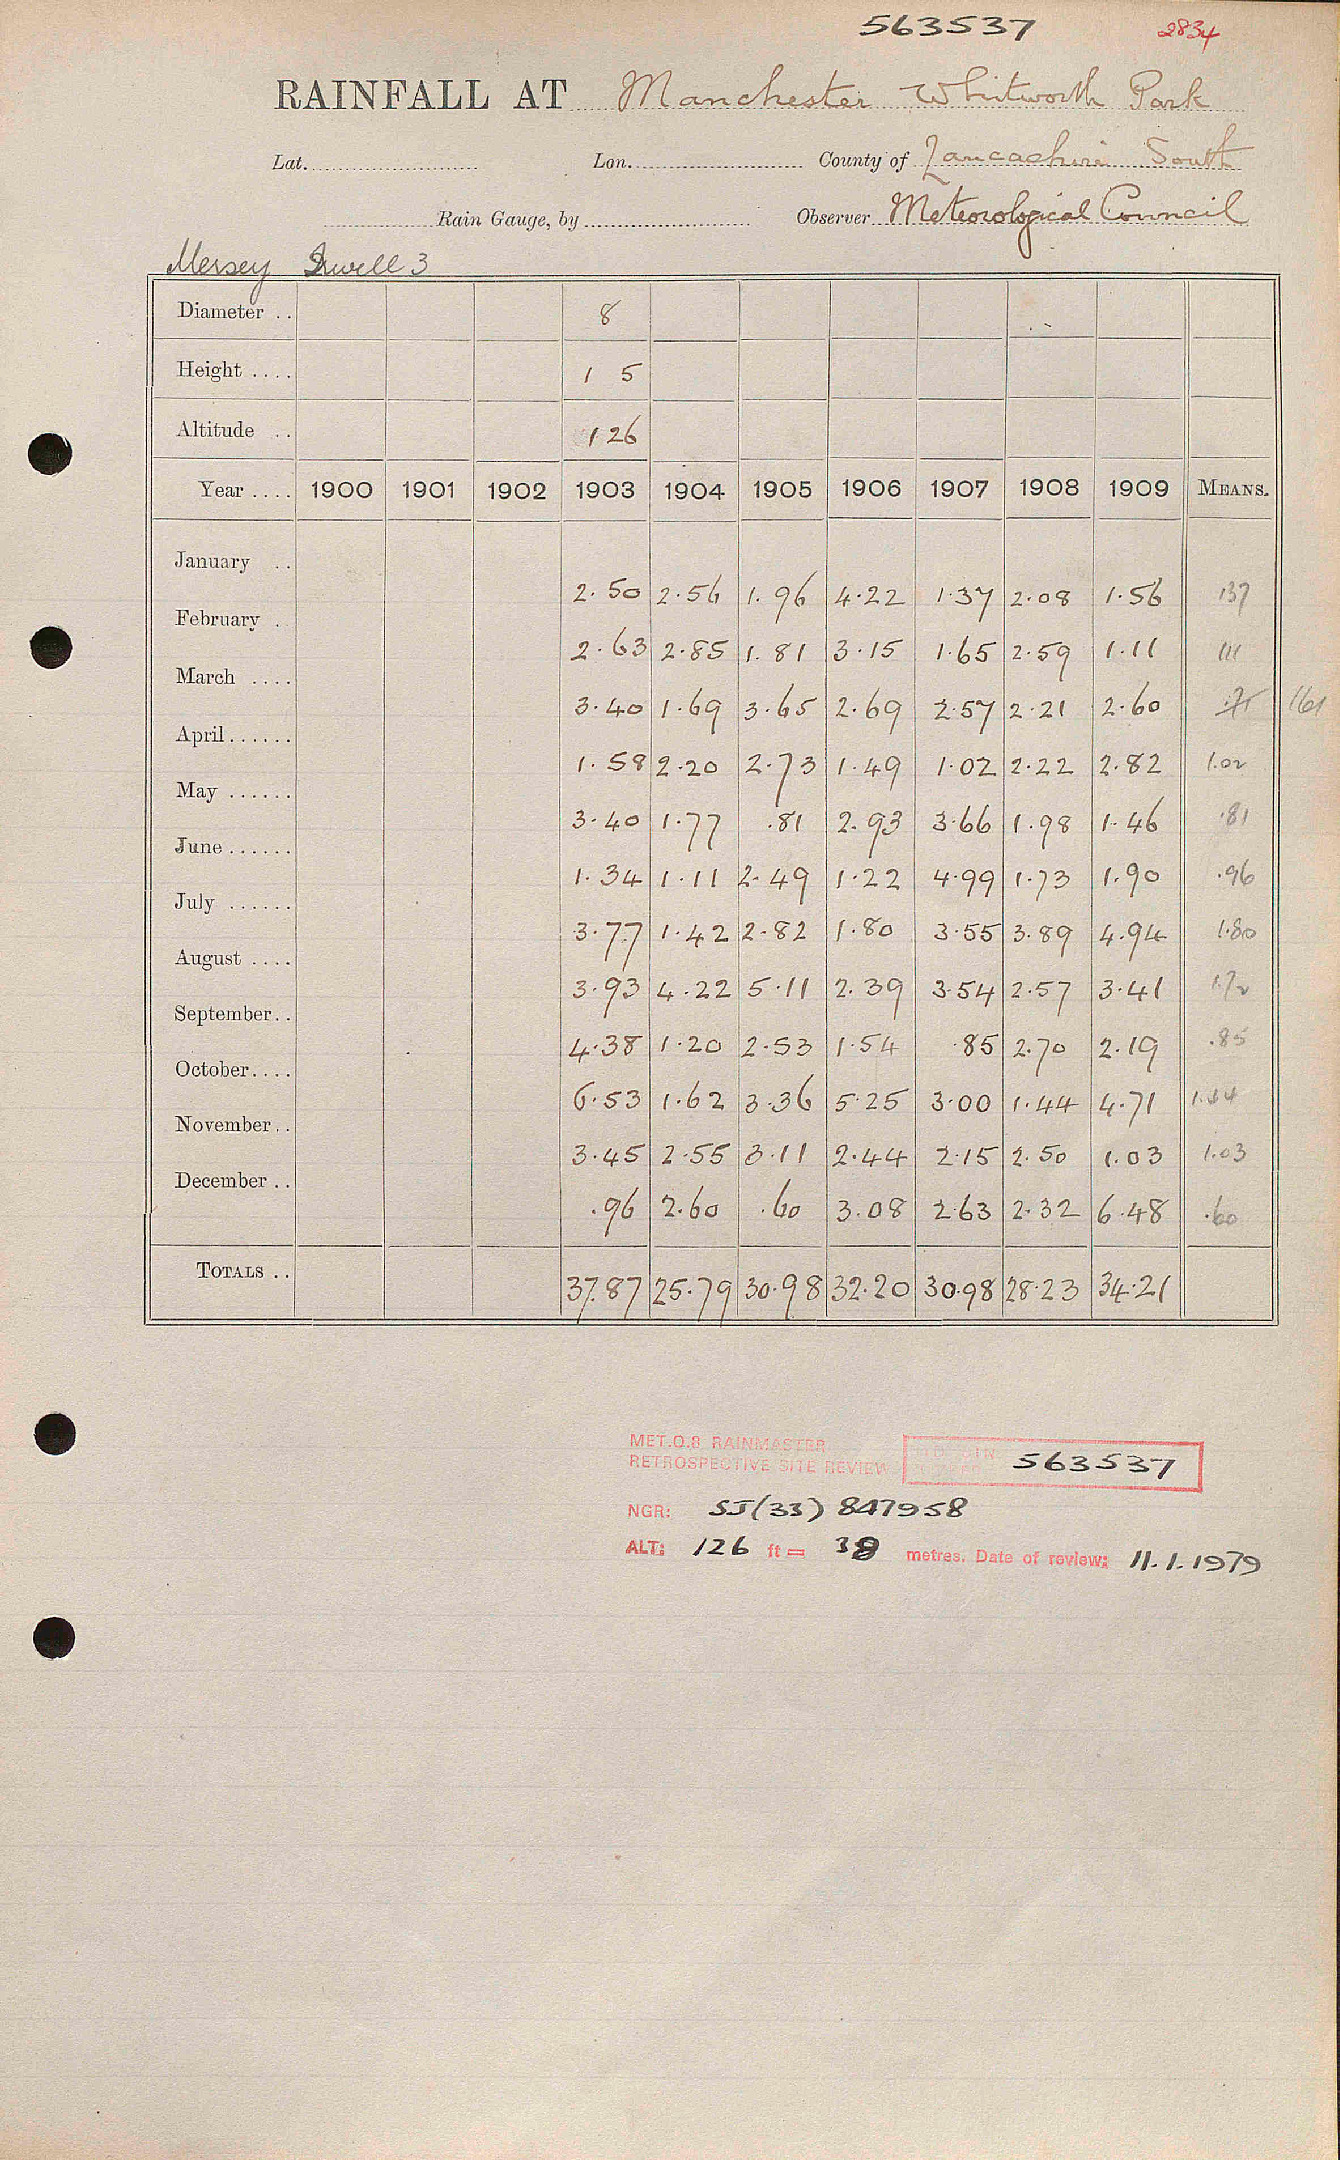 563537 2834
RAINFALL AT Manchester Whitworth Park
Lat. Lon. County of Lancashire South
Rain Gauge, by Observer Meteorological Council
Mersey Irwell 3
Diameter .. 8
Height .... 1 5
Altitude .. 126
Year .... 1900 1901 1902 1903 1904 1905 1906 1907 1908 1909 MEANS.
January .. 2.50 2.56 1.96 4.22 1.37 2.08 1.56 137
February . 2.63 2.85 1.81 3.15 1.65 2.59 1.11 111
March .... 3.40 1.69 3.65 2.69 2.57 2.21 2.60 161
April...... 1.58 2.20 2.73 1.49 1.02 2.22 2.82 1.02
May ...... 3.40 1.77 .81 2.93 3.66 1.98 1.46 .81
June ...... 1.34 1.11 2.49 1.22 4.99 1.73 1.90 .96
July ...... 3.77 1.42 2.82 1.80 3.55 3.89 4.94 1.80
August .... 3.93 4.22 5.11 2.39 3.54 2.57 3.41 1.72
September.. 4.38 1.20 2.53 1.54 .85 2.70 2.19 .85
October.... 6.53 1.62 3.36 5.25 3.00 1.44 4.71 1.44
November.. 3.45 2.55 3.11 2.44 2.15 2.50 1.03 1.03
December .. .96 2.60 .60 3.08 2.63 2.32 6.48 .60
TOTALS .. 37.87 25.79 30.98 32.20 30.98 28.23 34.21
MET.O.8 RAINMASTER
RETROSPECTIVE SITE REVIEW 563537
NGR: SJ(33) 847958
ALT: 126 ft = 38 metres. Date of review: 11.1.1979